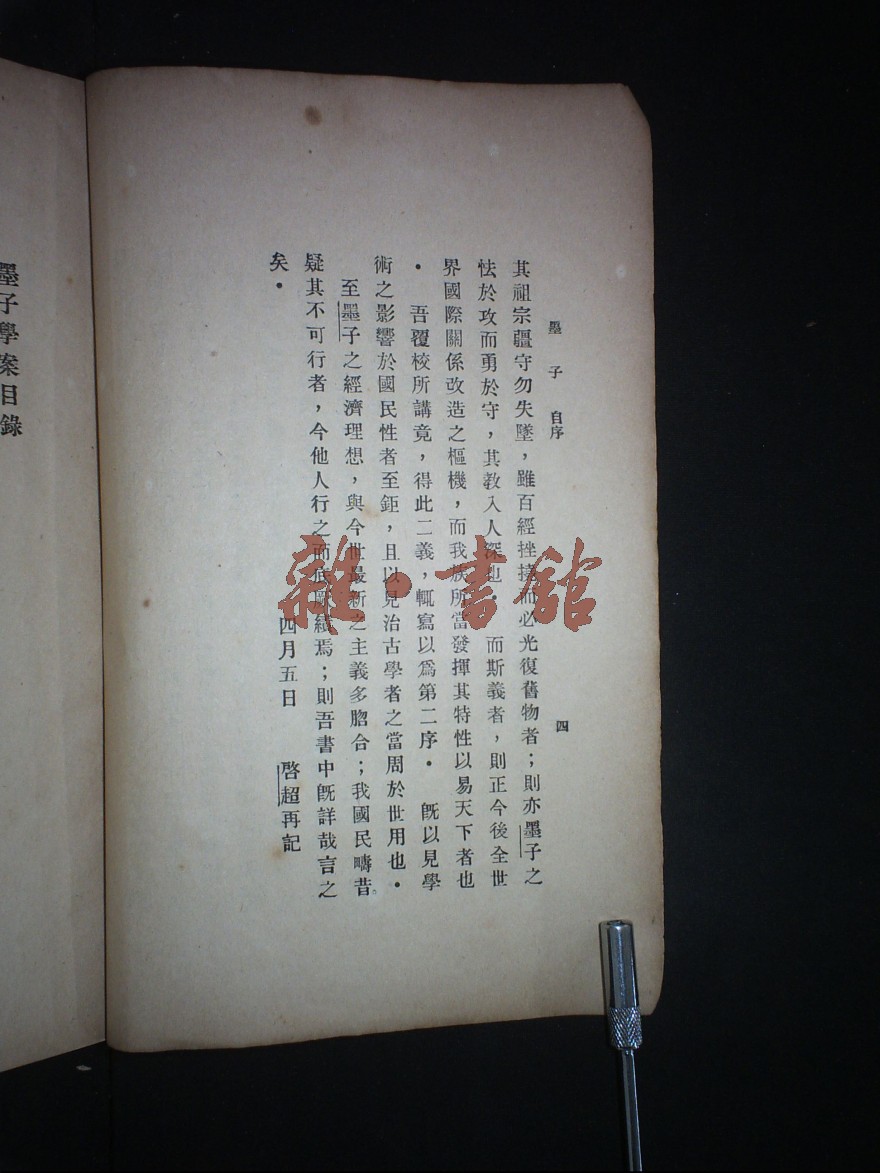 墨子 自序
四
其祖宗疆守勿失墜，雖百經挫撓而必光復舊物者；則亦墨子之
怯於攻而勇於守，其敎入人深也． 而斯義者，則正今後全世
界國際關係改造之樞機，而我族所當發揮其特性以易天下者也
． 吾覆校所講竟，得此二義，輒寫以爲第二序． 旣以見學
術之影響於國民性者至鉅，且以見治古學者之當周於世用也．
至墨子之經濟理想，與今世最新之主義多脗合；我國民疇昔
疑其不可行者，今他人行之而底厥績焉；則吾書中旣詳哉言之
矣．
四月五日 啓超再記
墨子學案目錄
雜·書館